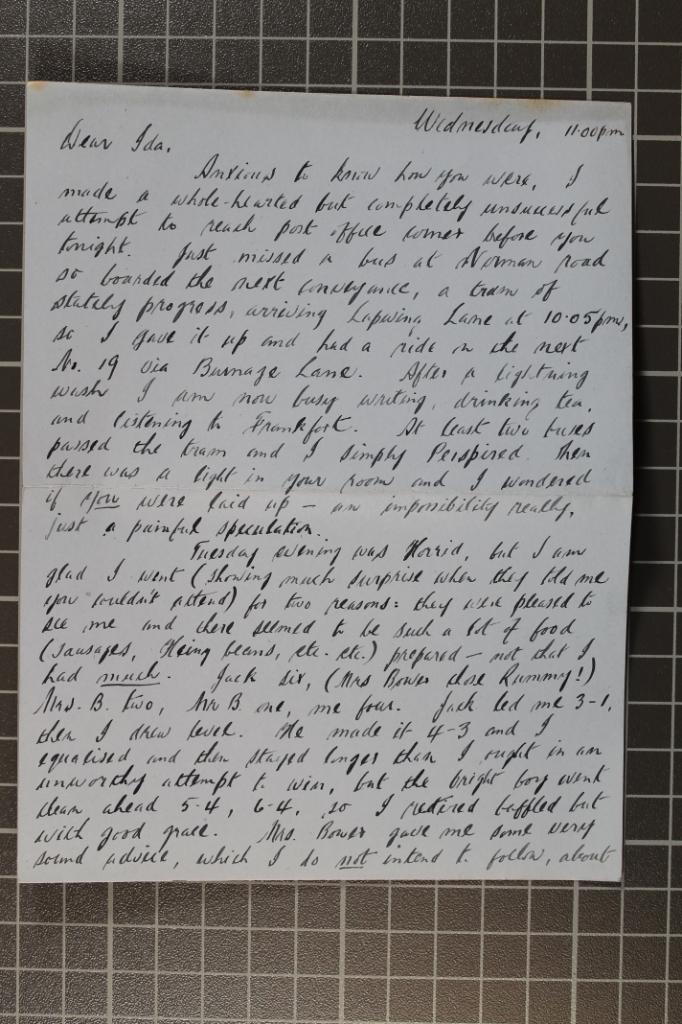 Wednesday, 11.00pm
Dear Ida,
Anxious to know how you were, I
made a whole-hearted but completely unsuccessful
attempt to reach post office corner before you
tonight. Just missed a bus at Norman road
so boarded the next conveyance, a tram of
stately progress, arriving Lapwing Lane at 10.05pm,
so I gave it up and had a ride on the next
No. 19 via Burnage Lane. After a lightning
wash I am now busy writing, drinking tea,
and listening to Frankfort. At least two buses
passed the tram and I simply Perspired. Then
there was a light in your room and I wondered
if you were laid up — an impossibility really,
just a painful speculation.
Tuesday evening was Horrid, but I am
glad I went (showing much surprise when they told me
you wouldn't attend) for two reasons: they were pleased to
see me and there seemed to be such a lot of food
(sausages, Heinz beans, etc. etc.) prepared — not that I
had much. Jack six, (Mrs Bower close Rummy!)
Mrs. B. two, Mr B. one, me four. Jack led me 3-1,
then I drew level. He made it 4-3 and I
equalised and then stayed longer than I ought in an
unworthy attempt to win, but the bright boy went
clean ahead 5-4, 6-4, so I retired baffled but
with good grace. Mrs. Bower gave me some very
sound advice, which I do not intend to follow, about